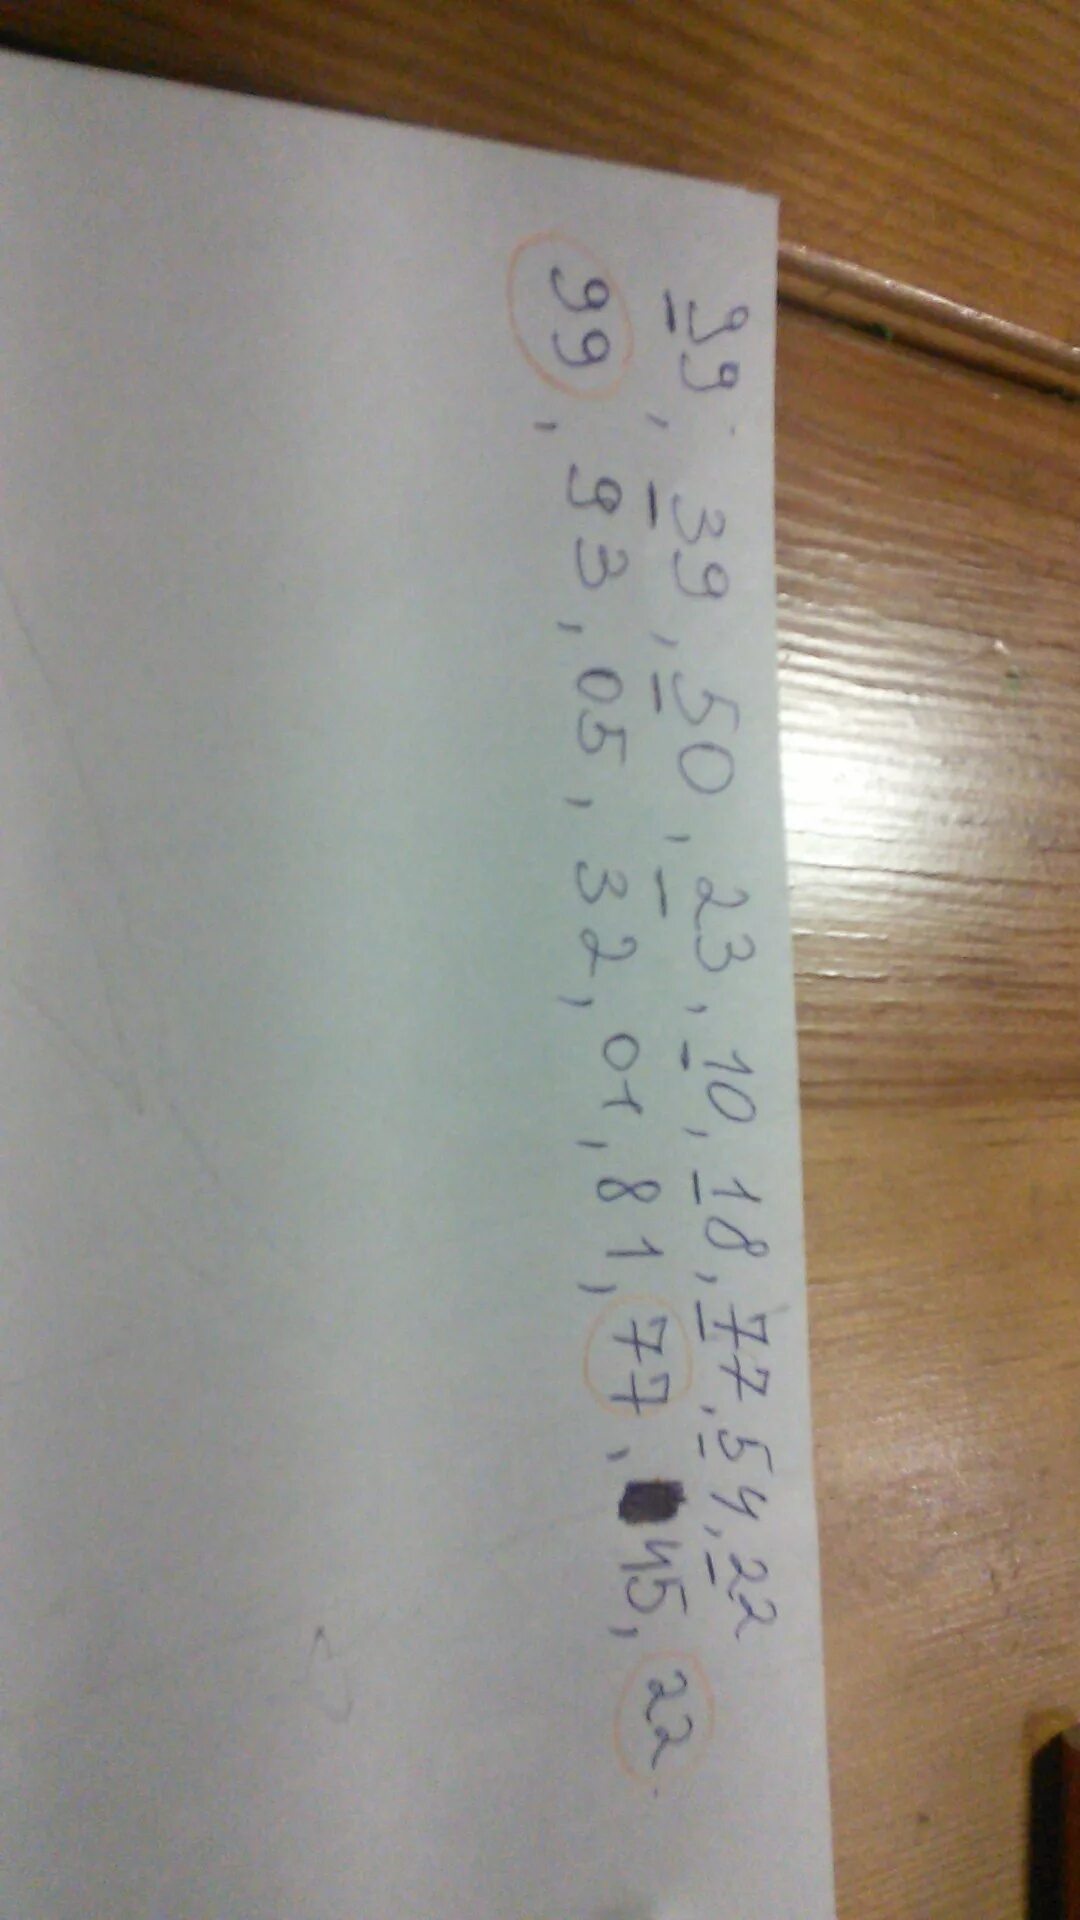 99, 39, 50, 23, 10, 18, 77, 54, 22
99, 93, 05, 32, 01, 81, 77, 45, 22.